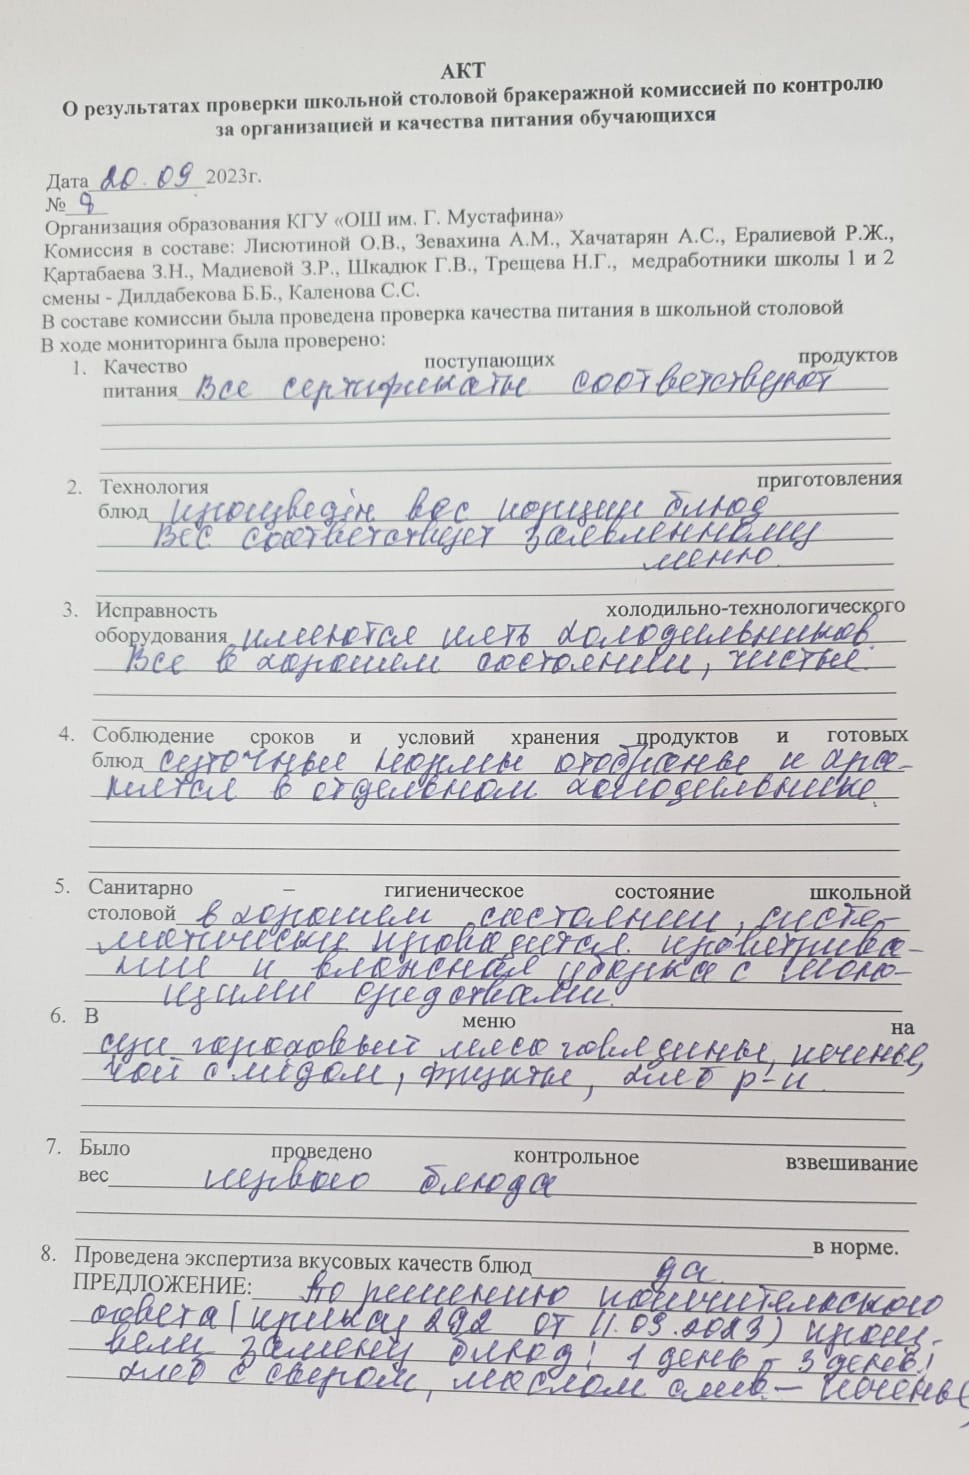 АКТ
О результатах проверки школьной столовой бракеражной комиссией по контролю
за организацией и качества питания обучающихся
Дата 20.09 2023г.
№ 8
Организация образования КГУ «ОШ им. Г. Мустафина»
Комиссия в составе: Лисютиной О.В., Зевахина А.М., Хачатарян А.С., Ералиевой Р.Ж.,
Қартабаева З.Н., Мадиевой З.Р., Шкадюк Г.В., Трещева Н.Г., медработники школы 1 и 2
смены - Дилдабекова Б.Б., Каленова С.С.
В составе комиссии была проведена проверка качества питания в школьной столовой
В ходе мониторинга была проверено:
1. Качество поступающих продуктов
питания Все сертификаты соответствуют
2. Технология приготовления
блюд произведён вес порции блюд
Вес соответствует заявленному
меню.
3. Исправность холодильно-технологического
оборудования имеются пять холодильников.
Все в хорошем состоянии, чистые.
4. Соблюдение сроков и условий хранения продуктов и готовых
блюд суточные нормы отобраны и хра-
нятся в отдельном холодильнике.
5. Санитарно – гигиеническое состояние школьной
столовой в хорошем состоянии, систе-
матически проводится проветрива-
ние и влажная уборка с мою-
щими средствами.
6. В меню на
суп гороховый мясо говядины, печенье,
чай с мёдом, фрукты, хлеб р-п
7. Было проведено контрольное взвешивание
вес первого блюда
в норме.
8. Проведена экспертиза вкусовых качеств блюд да.
ПРЕДЛОЖЕНИЕ: По решению попечительского
совета (приказ 292 от 11.09.2023) произ-
вели замену блюд! 1 день - 3 день!
хлеб с сыром, маслом слив. – печенье,